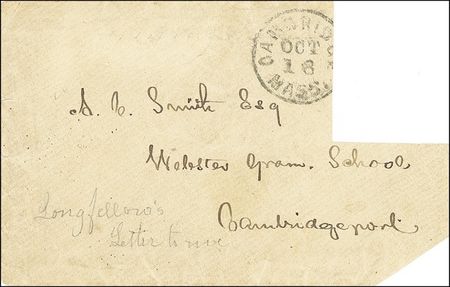 CAMBRIDGE
OCT
18
MASS.
A. C. Smith Esq
Webster Gram. School
Cambridgeport
Longfellow's
Letter to me